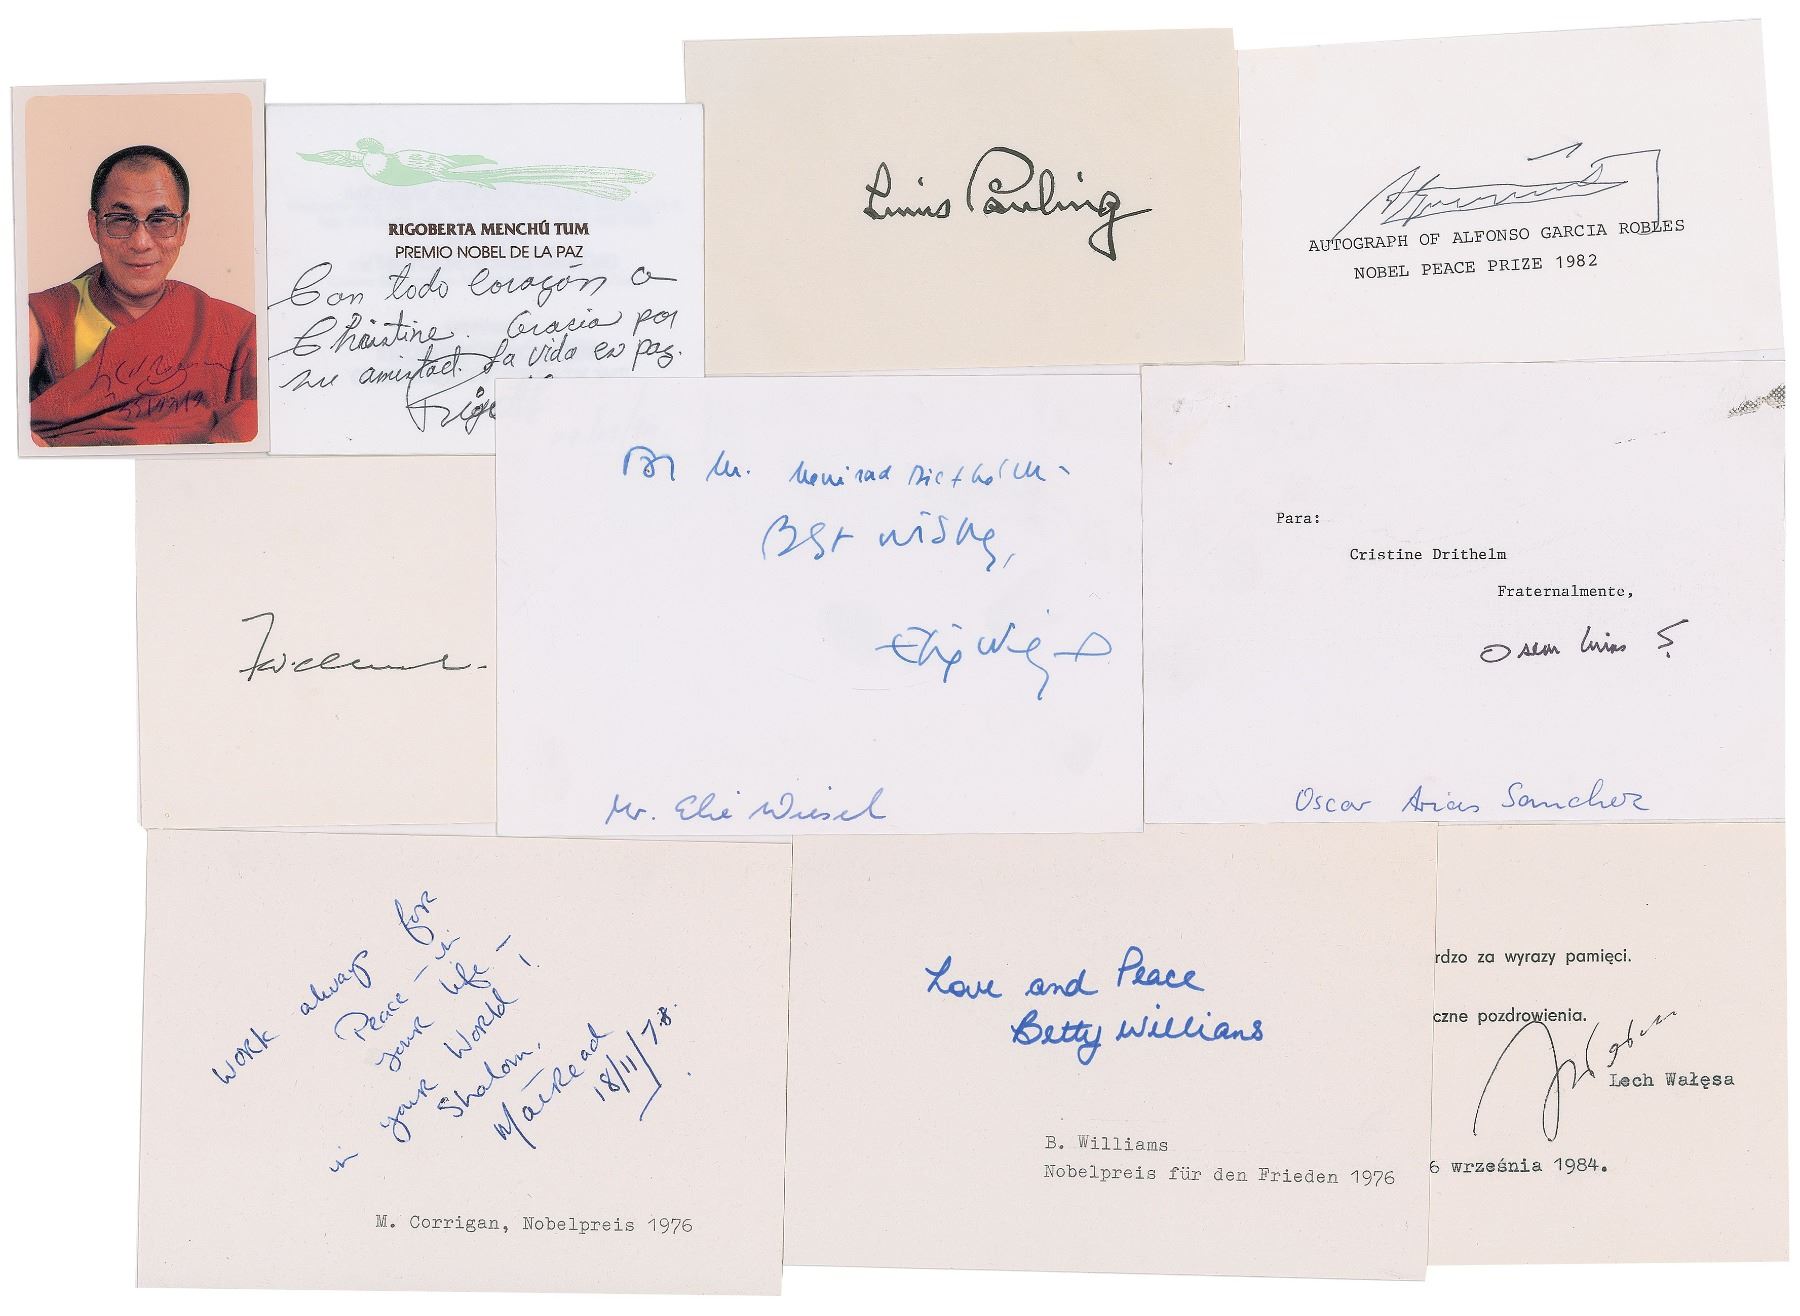 RIGOBERTA MENCHÚ TUM
PREMIO NOBEL DE LA PAZ
Con todo Corazón a
Christine. Gracia por
su amistad. La vida en paz.
Linus Pauling
AUTOGRAPH OF ALFONSO GARCIA ROBLES
NOBEL PEACE PRIZE 1982
Best wishes,
Elie Wiesel
Mr. Elie Wiesel
Para:
Cristine Drithelm
Fraternalmente,
Oscar Arias Sanchez
Work always for
Peace - in
your life -
in your World!
Shalom.
Mairead
18/11/78.
M. Corrigan, Nobelpreis 1976
Love and Peace
Betty Williams
B. Williams
Nobelpreis für den Frieden 1976
rdzo za wyrazy pamięci.
czne pozdrowienia.
Lech Wałęsa
6 września 1984.